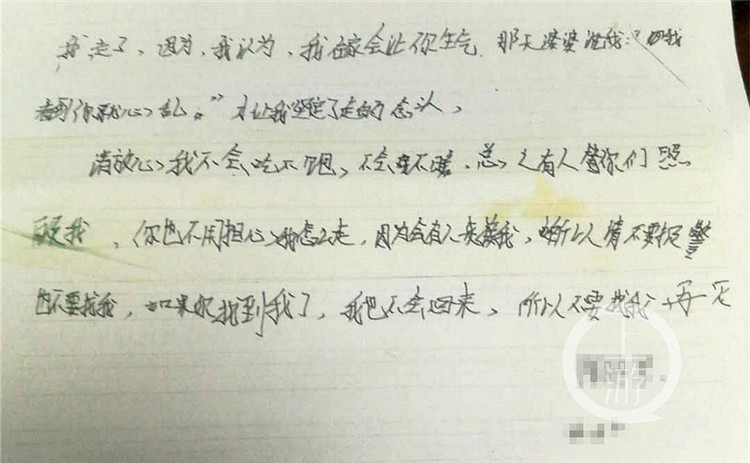 我走了,因为,我认为,我在家会让你生气.那天婆婆说我:“我
看到你就心乱。”才让我坚定了走的念头,
请放心我不会吃不饱,不会穿不暖.总之有人替你们照
顾我,你也不用担心我怎么走,因为会有人来接我,所以请不要报警
也不要找我,如果你找到我了,我也不会回来,所以不要找我.再见
上游